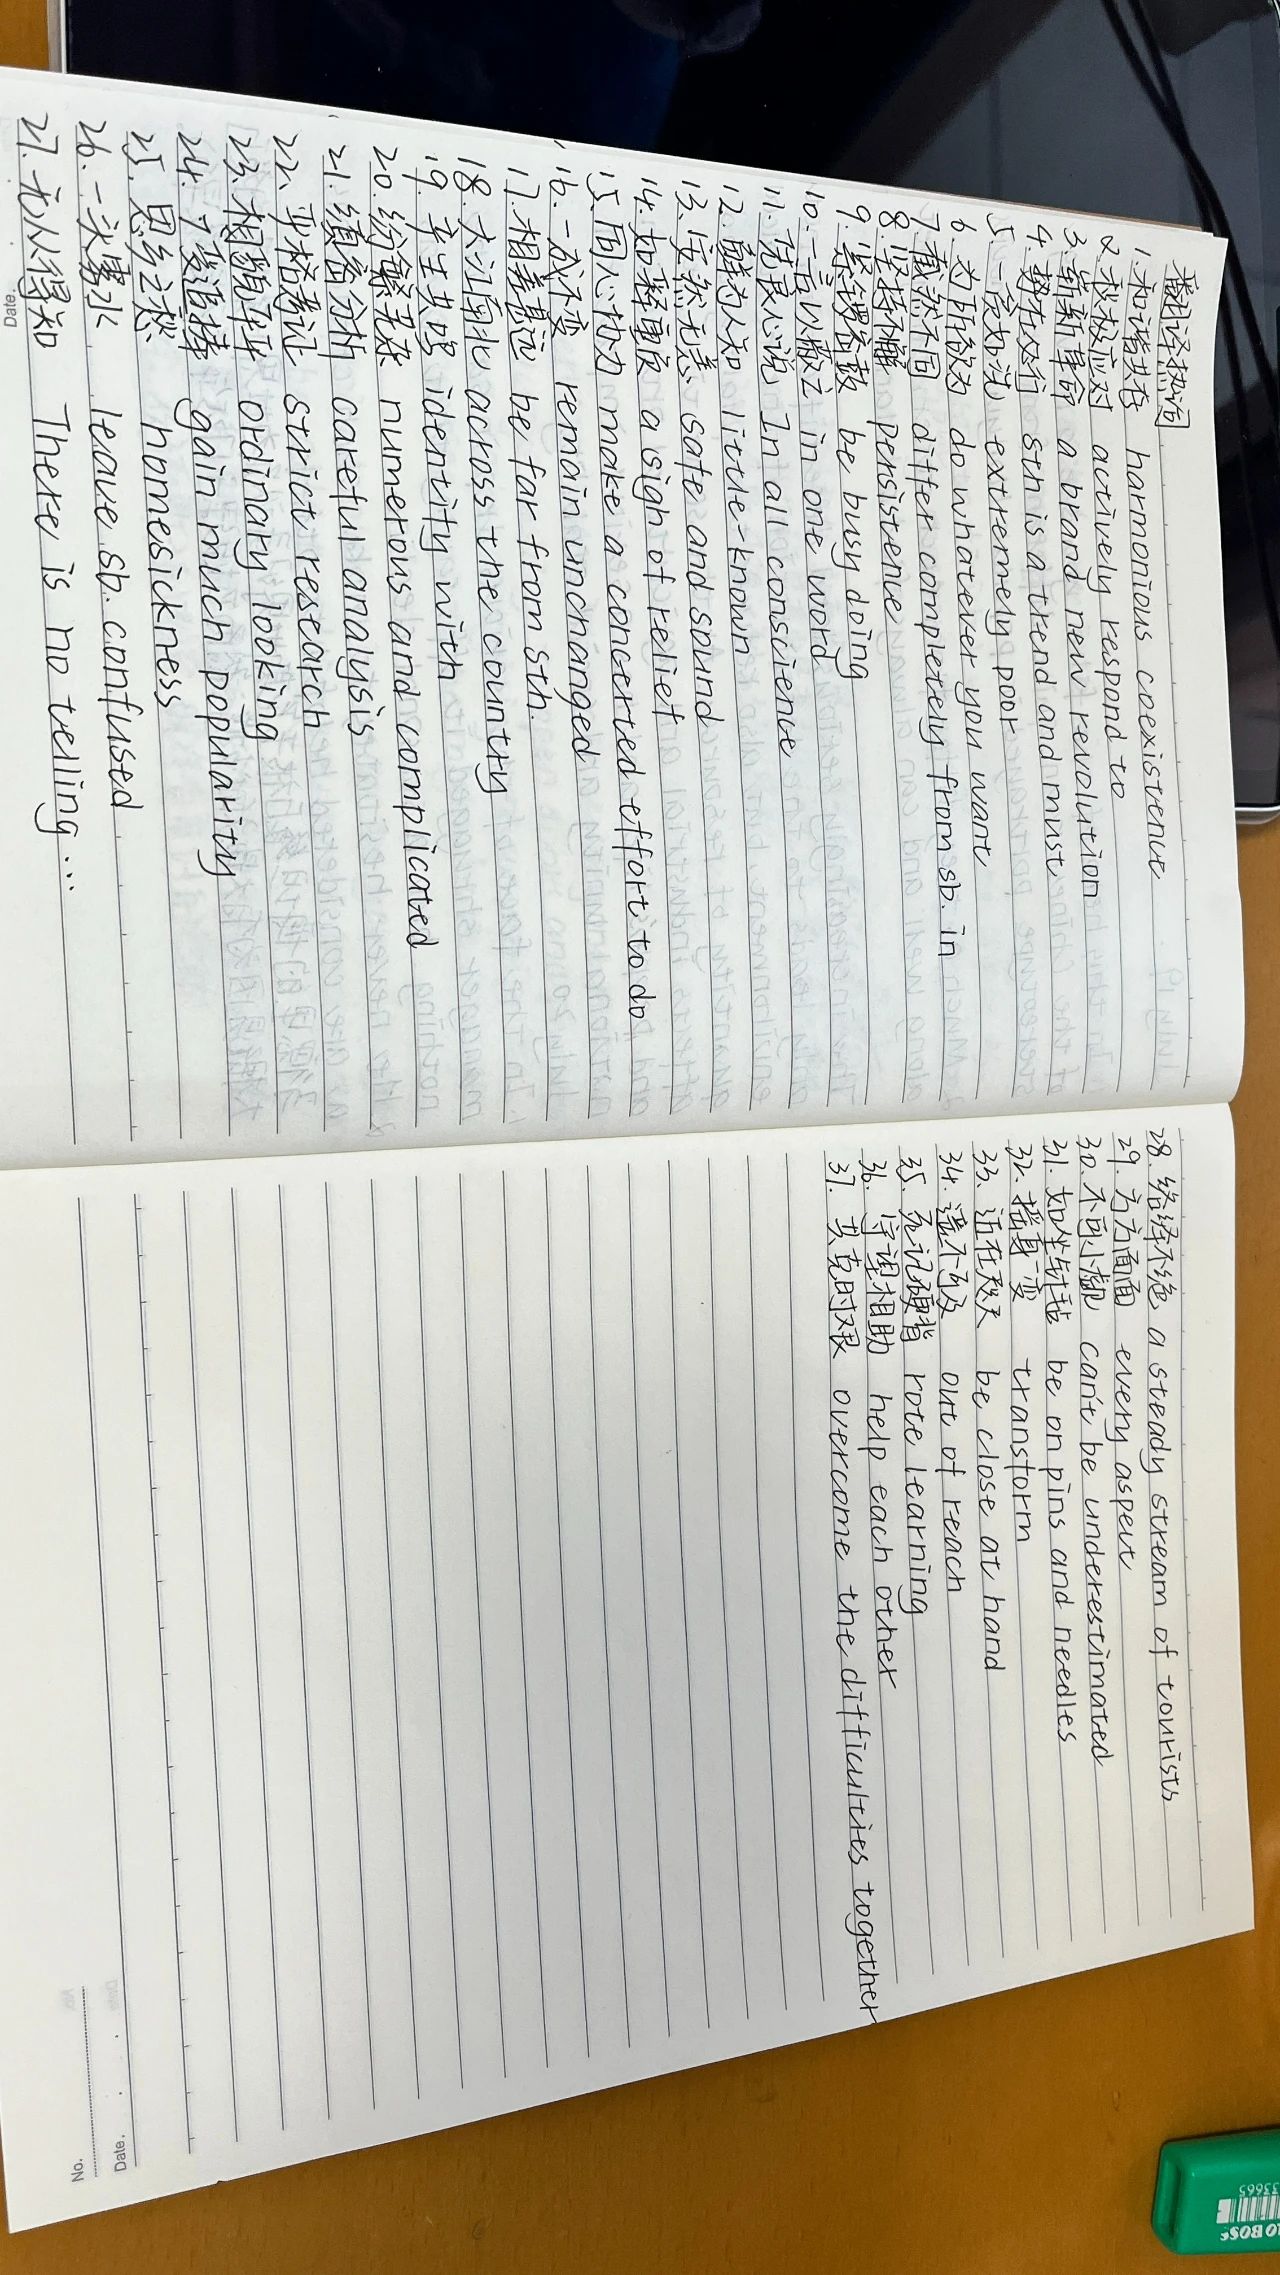 翻译热词
1. 和谐共存 harmonious coexistence
2. 积极应对 actively respond to
3. 崭新革命 a brand new revolution
4. 势在必行 sth is a trend and must
5. 一贫如洗 extremely poor
6. 为所欲为 do whatever you want
7. 截然不同 differ completely from sb. in
8. 坚持不懈 persistence
9. 紧锣密鼓 be busy doing
10. 一言以蔽之 in one word
11. 凭良心说 In all conscience
12. 鲜为人知 little-known
13. 安然无恙 safe and sound
14. 如释重负 a sigh of relief
15. 同心协力 make a concerted effort to do
16. 一成不变 remain unchanged
17. 相差甚远 be far from sth.
18. 大江南北 across the country
19. 产生共鸣 identity with
20. 纷繁呈杂 numerous and complicated
21. 缜密分析 careful analysis
22. 严格考证 strict research
23. 相貌平平 ordinary looking
24. 广受追捧 gain much popularity
25. 思乡之愁 homesickness
26. 一头雾水 leave sb. confused
27. 无从得知 There is no telling ...
Date.
28. 络绎不绝 a steady stream of tourists
29. 方方面面 every aspect
30. 不可小觑 can't be underestimated
31. 如坐针毡 be on pins and needles
32. 摇身一变 transform
33. 近在咫尺 be close at hand
34. 遥不可及 out of reach
35. 死记硬背 rote learning
36. 守望相助 help each other
37. 共克时艰 overcome the difficulties together
No.
Date.
33665
BOSS